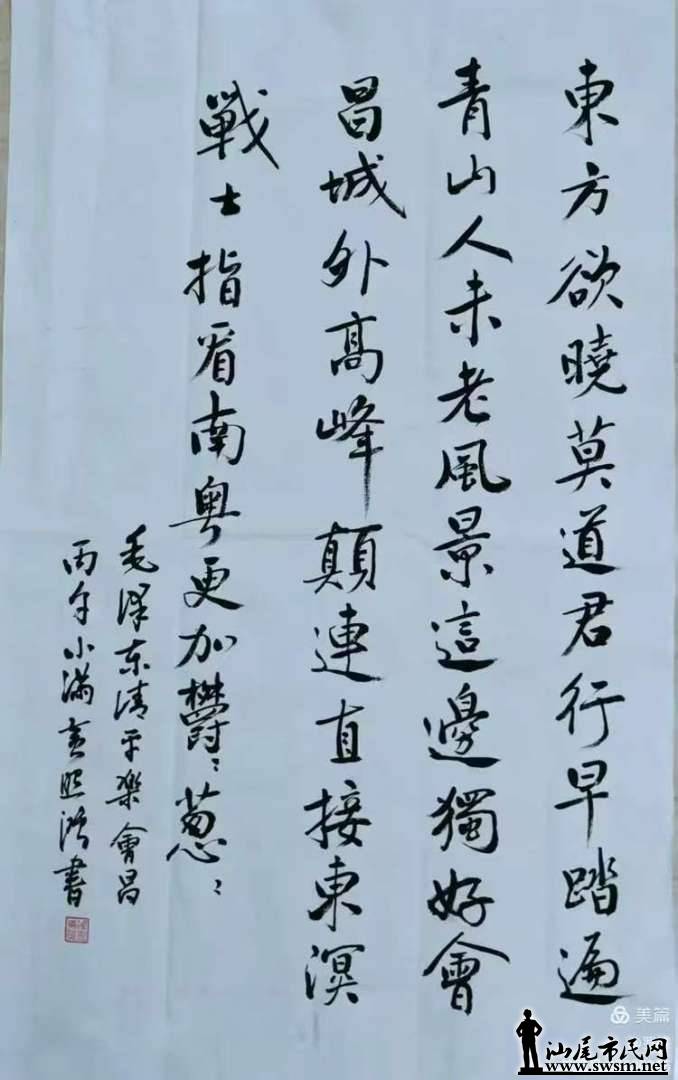 東方欲曉莫道君行早踏遍
青山人未老風景這邊獨好會
昌城外高峰顛連直接東溟
戰士指看南粤更加鬱〻葱〻
毛澤东清平樂會昌
丙午小满黄照浩書
美篇
汕尾市民网
www.swsm.net